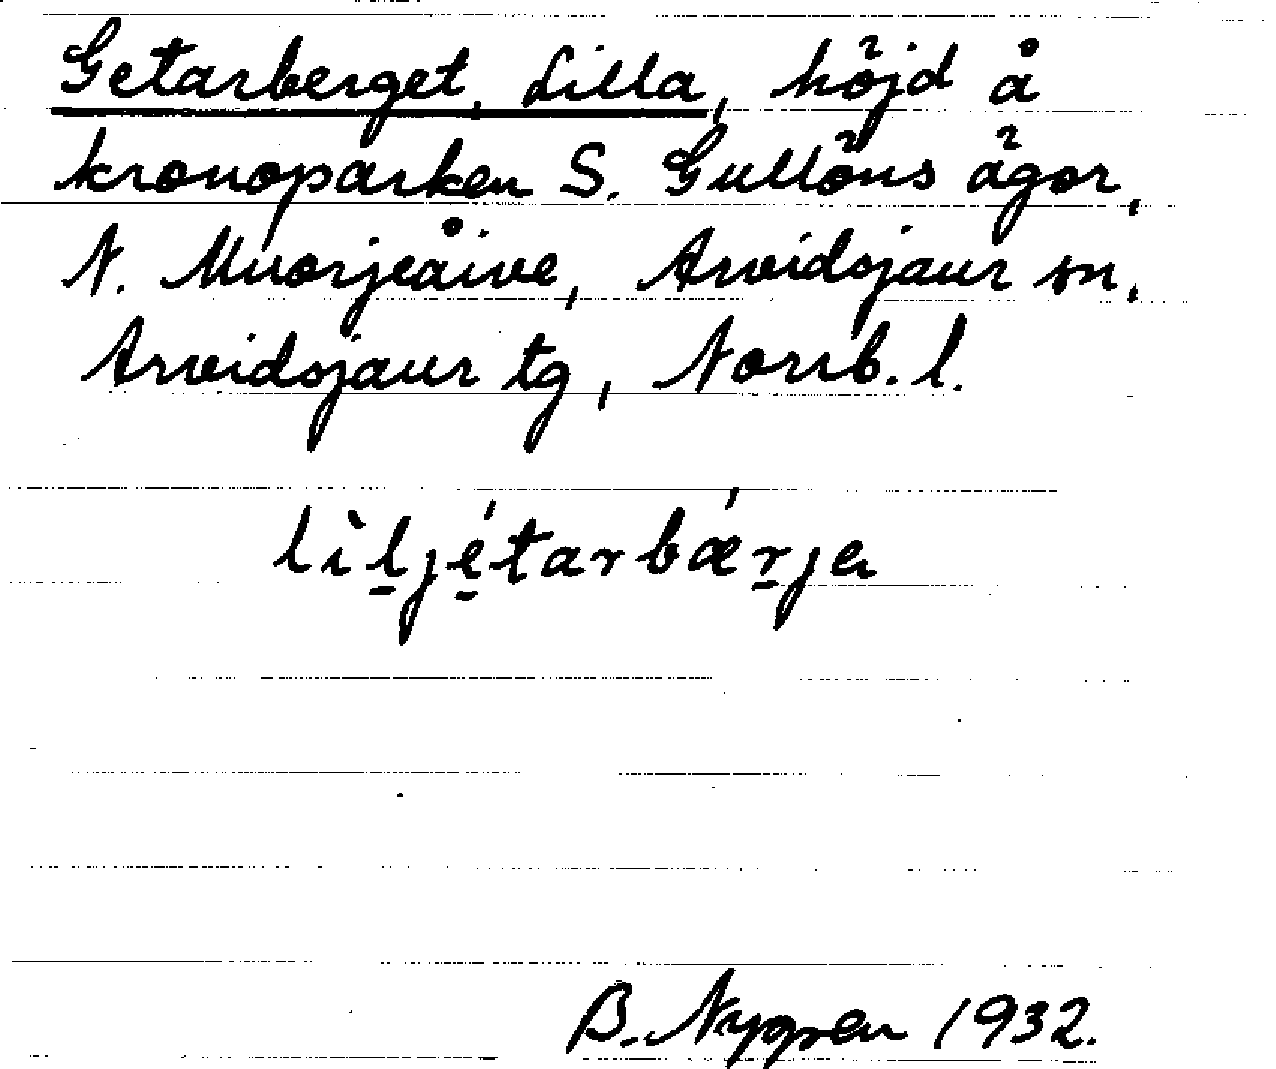 Getarberget, Lilla, höjd å
kronoparken S. Gullöns ägor,
N. Muorjeåive, Arvidsjaur sn,
Arvidsjaur tg, Norrb. l.
lìl̠jé̠tarbǽr̠je
B. Nygren 1932.